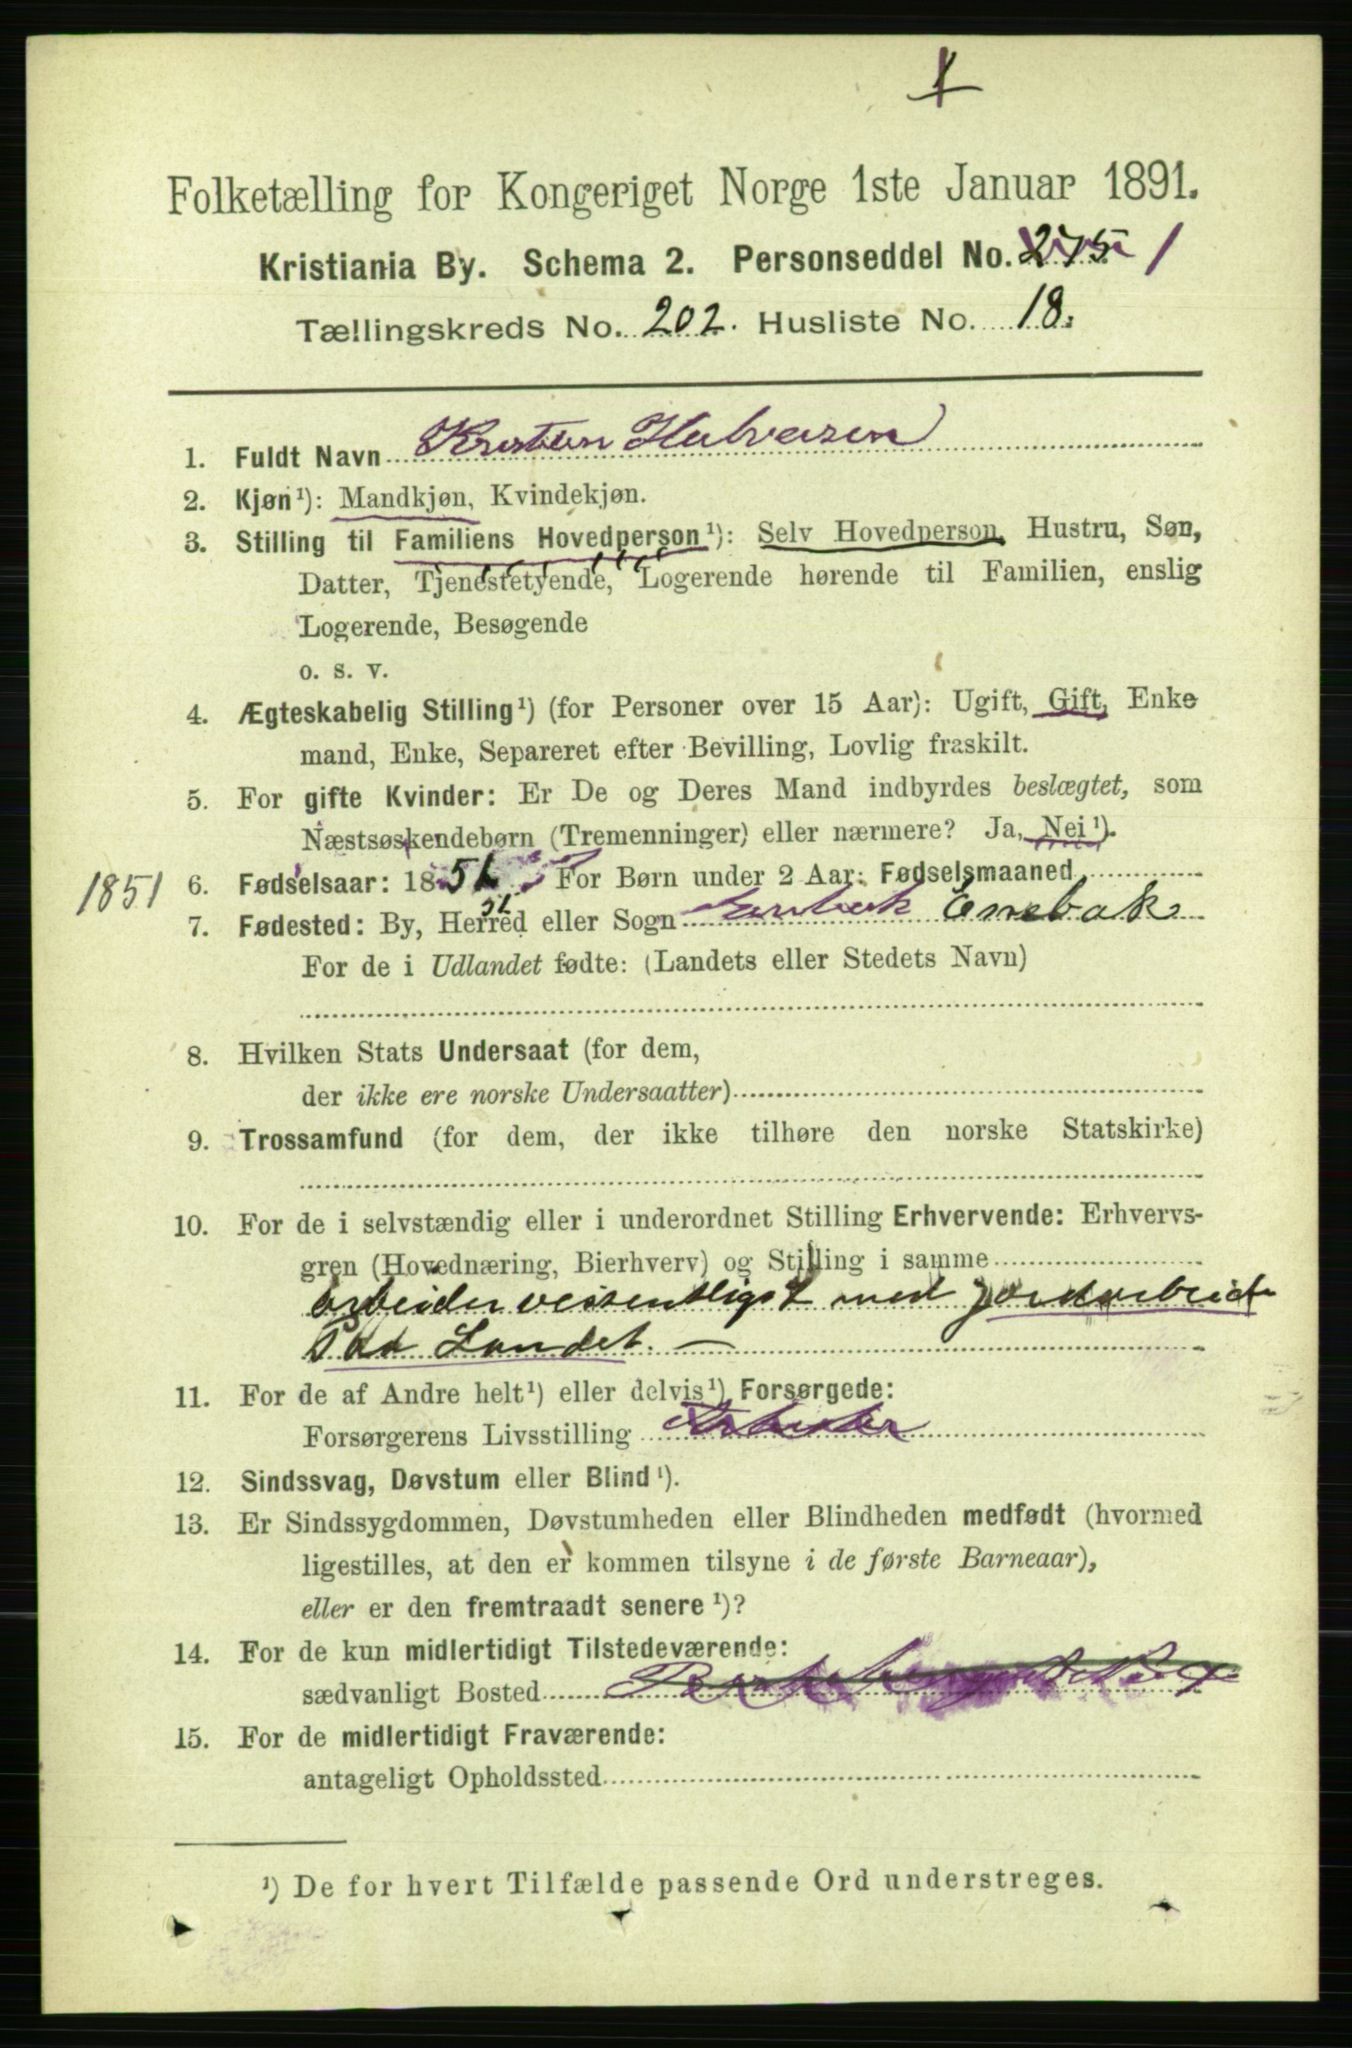 Folketælling for Kongeriget Norge 1ste Januar 1891.
Kristiania By. Schema 2. Personseddel No. 275 1
Tællingskreds No. 202. Husliste No. 18.
1. Fuldt Navn Kristian Halvorsen
2. Kjøn¹): Mandkjøn, Kvindekjøn.
3. Stilling til Familiens Hovedperson¹): Selv Hovedperson, Hustru, Søn,
Datter, Tjenestetyende, Logerende hørende til Familien, enslig
Logerende, Besøgende
o. s. v.
4. Ægteskabelig Stilling¹) (for Personer over 15 Aar): Ugift, Gift, Enke
mand, Enke, Separeret efter Bevilling, Lovlig fraskilt.
5. For gifte Kvinder: Er De og Deres Mand indbyrdes beslægtet, som
Næstsøskendebørn (Tremenninger) eller nærmere? Ja, Nei¹).
1851 6. Fødselsaar: 1851 For Børn under 2 Aar: Fødselsmaaned
51
7. Fødested: By, Herred eller Sogn Enebak
For de i Udlandet fødte: (Landets eller Stedets Navn)
8. Hvilken Stats Undersaat (for dem,
der ikke ere norske Undersaatter)
9. Trossamfund (for dem, der ikke tilhøre den norske Statskirke)
10. For de i selvstændig eller i underordnet Stilling Erhvervende: Erhvervs-
gren (Hovednæring, Bierhverv) og Stilling i samme
arbeider vessentligst med jordarbeide
paa Landet. —
11. For de af Andre helt¹) eller delvis¹) Forsørgede:
Forsørgerens Livsstilling Arbeider
12. Sindssvag, Døvstum eller Blind¹).
13. Er Sindssygdommen, Døvstumheden eller Blindheden medfødt (hvormed
ligestilles, at den er kommen tilsyne i de første Barneaar),
eller er den fremtraadt senere¹)?
14. For de kun midlertidigt Tilstedeværende:
sædvanligt Bosted
15. For de midlertidigt Fraværende:
antageligt Opholdssted
¹) De for hvert Tilfælde passende Ord understreges.